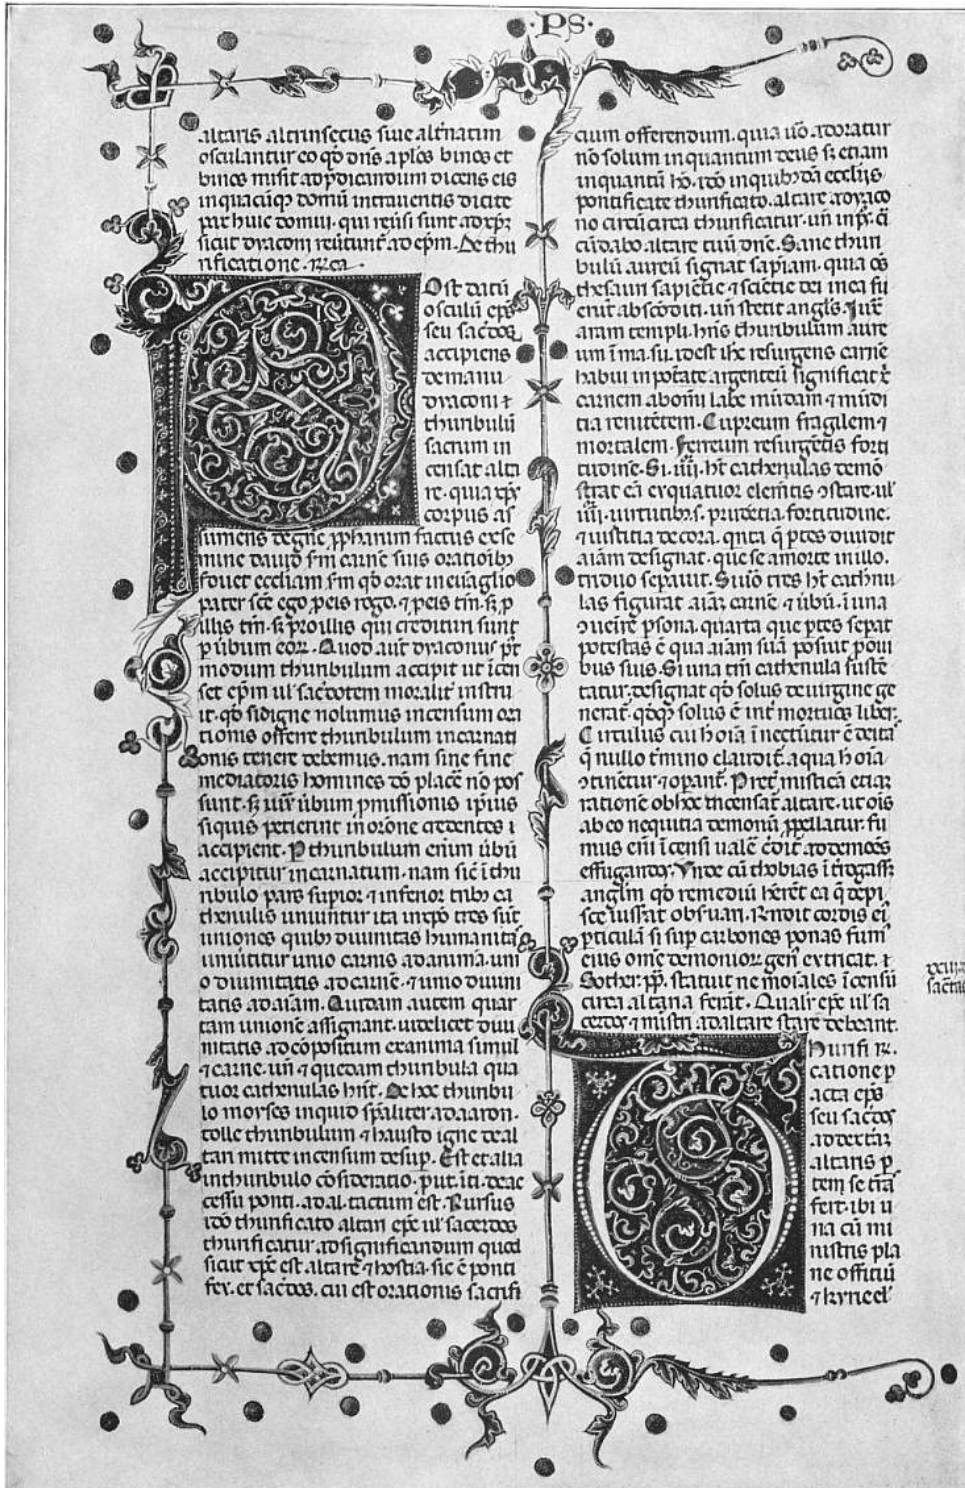 ·PS·
altaris altrinsecus siue alt'natim
osculantur eo qđ dns aplos binos et
binos misit ad p̄dicandum dicens eis
in quacūq domū intraueritis dicite
pax huic domui. qui reūsi sunt ad xp̄m
sicut dyaconi reūtunt' ad ep̄m. De thu
rificatione.
Ost datū
osculū ep̄s
seu sac̄dos
accipiens
de manu
dyaconi
thuribulū
sacrum in
censat alta
re. quia xp̄c
corpus as
sumens
mine dauid
fouet eccliam
pater sc̄e ego p̄ eis rogo.
illis tm̄. s; pro illis qui credituri sunt
p ūbum eoꝝ. Quod aut̄ dyaconus
modum thuribulum accipit ut īcen
set ep̄m ul' sac̄dotem moralit' instru
it. qđ si digne uolumus incensum ora
tionis offerre thuribulum incarnati
onis tenere debemus. nam sine fine
mediatoris homines do placē nō pos
sunt.
siquis petierint in orōne credentes
accipient. P thuribulum enim ūbū
accipitur incarnatum. nam sic ī thu
ribulo pars supior ⁊ inferior trib; ca
thenulis uniuntur ita in xp̄o tres sūt
uniones quib; diuinitas humanita
uniūtitur unio carnis ad anima. uni
o diuinitatis ad carnē. ⁊ unio diuini
tatis ad aīam. Quidam autem quar
tam unionē assignant. uidelicet diui
nitatis ad cōpositum ex anima simul
⁊ carne. un̄ ⁊ quedam thuribula qua
tuor cathenulas hn̄t. De hoc thuribu
lo moyses inquid sp̄aliter ad aaron.
tolle thuribulum ⁊ hausto igne de al
tari mitte incensum desup. Est et alia
in thuribulo cōsideratio.
cessu ponti. ad al. tactum est. Rursus
ido thurificato altari ep̄c ul' sacerdos
thurificatur ad significandum quod
sicut xp̄c est altare ⁊ hostia. sic ē ponti
fex. et sac̄dos. cui est orationis sacrifi
cium offerendum. quia uō adoratur
nō solum in quantum deus s; etiam
in quantū hō. ido in quibdā ecclijs
pontificate thurificato. altare a dyaco
no circūcirca thurificatur. un̄ in ps.
cūdabo altare tuū dn̄e. Sane thuri
bulū aureū signat sapiam. quia oēs
thesauri sapiētie ⁊ sciētie dei in ea fu
erūt absconditi. un̄ stetit angls. Iux̄
aram templi. hn̄s thuribulum aure
um ī ma. su. id est ihc resurgens carnē
habuit in potāte argenteū significat
carnem ab omī labe mūdam ⁊ mūdi
tia renitētem. Cupreum fragilem ⁊
mortalem. Ferreum resurgētis forti
tudinē. Si. iiii. h̄t cathenulas demō
strat eā ex quatuor elem̄tis ɔstare. ul'
iiii. uirtutib;. s. prudētia fortitudine.
⁊ iustitia decora. qn̄ta q̄ p̄tes diuidit
aīam designat. que se a morte in illo.
triduo sepauit. Si uō tres h̄t cathnu
las figurat aīaꝫ carnē ⁊ ūbū. ī una
ɔuenīre psona. quarta que p̄tes sepat
potestas ē qua aīam suā posuit p oui
bus suis. Si una tm̄ cathenula fuste
tatur. designat qđ solus de uirgine ge
nerat'. qđq solus ē int' mortuos liber.
Circulus cui h oīa ī nectūtur ē deita
q̄ nullo t'mino claudit'. a qua h oīa
ɔtinētur ⁊ opant'. Pret' misticā etiaꝫ
rationē ob hoc īncensat' altare. ut oīs
ab eo nequitia demonū ppellatur. fu
mus eni īcensi ualē ad demōes
effugandos. Vnde cū thobias īt'rogass;
anglm qđ remediū
sce iussat obsuari. Rn̄dit cordis ei
particulā si sup carbones ponas fum
eius omē demonioꝝ gen' extricat. ⁊
Sother. pp. statuit ne moīales īcensū
circa altaria ferāt. Qualr ep̄c ul' sa
cerdos ⁊ mīstri ad altare stare debeant.
hurifi
catione p
acta ep̄s
seu sac̄dos
ad dextāꝫ
altaris p
tem se trā
fert. ibi u
na cū mi
nistris pla
ne offitiū
⁊ kyrieel'